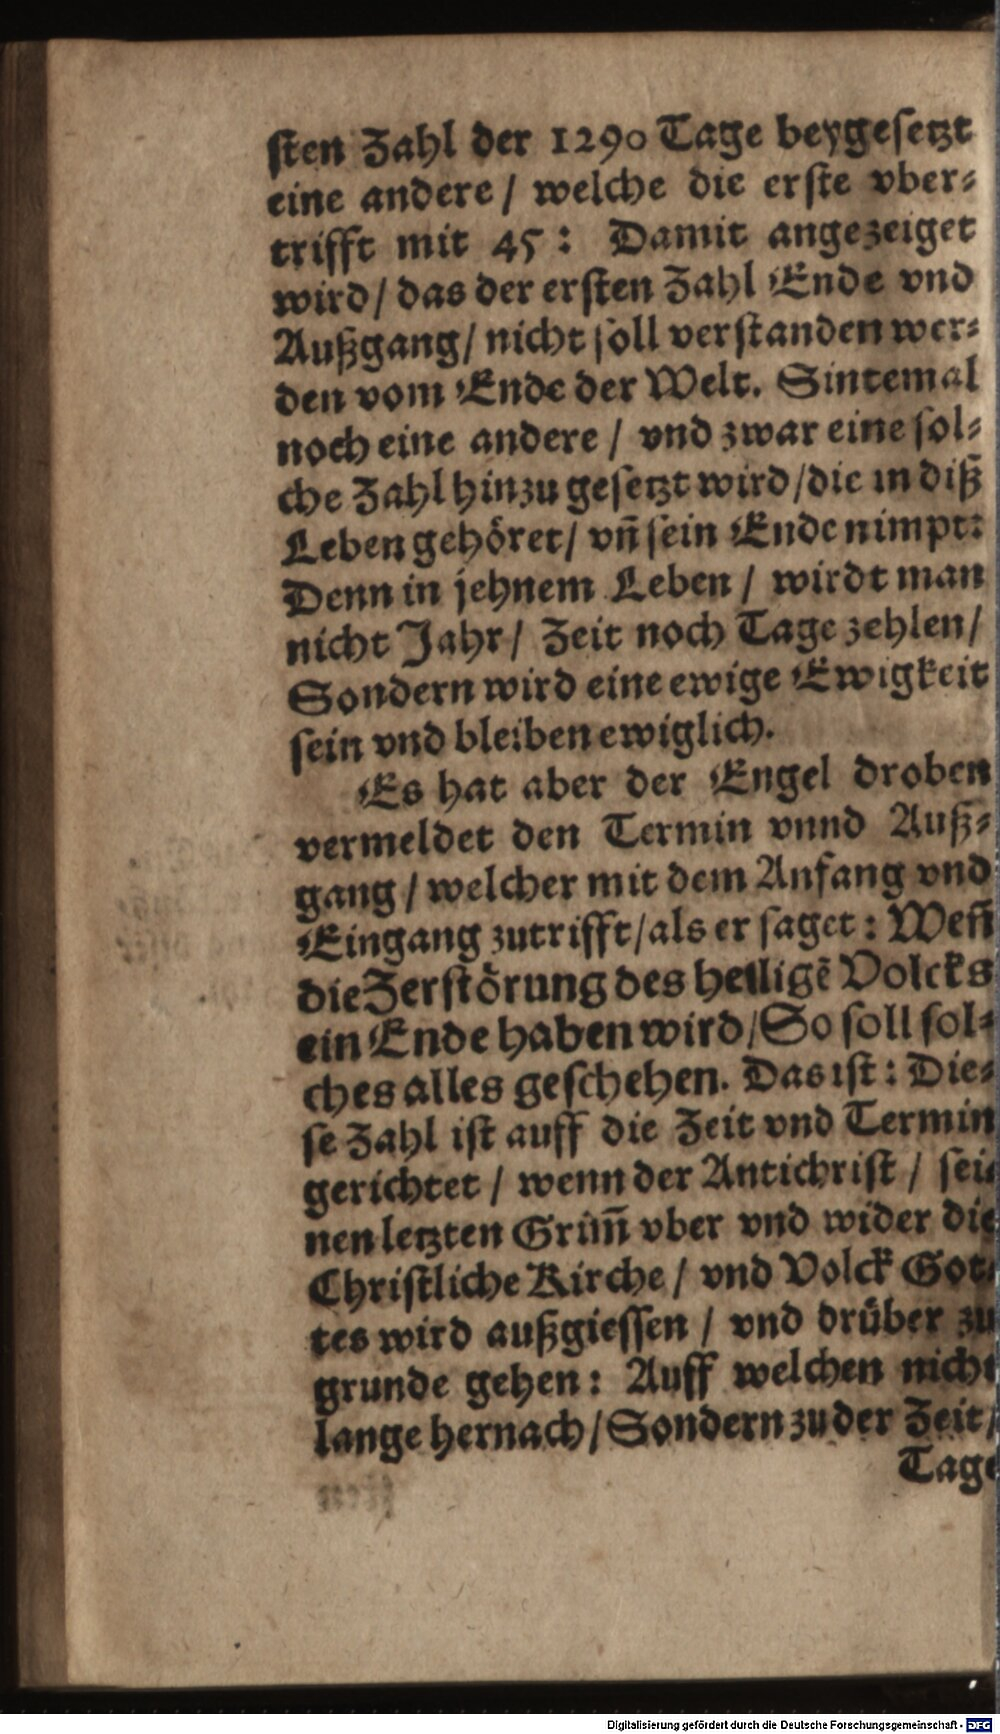 sten Zahl der 1290 Tage beygesetzt
eine andere / welche die erste vber⸗
trifft mit 45 : Damit angezeiget
wird / das der ersten Zahl Ende vnd
Außgang / nicht soll verstanden wer⸗
den vom Ende der Welt. Sintemal
noch eine andere / vnd zwar eine sol⸗
che Zahl hinzu gesetzt wird / die in diß
Leben gehöret / vn̄ sein Ende nimpt:
Denn in jehnem Leben / wirdt man
nicht Jahr / Zeit noch Tage zehlen /
Sondern wird eine ewige Ewigkeit
sein vnd bleiben ewiglich.
Es hat aber der Engel droben
vermeldet den Termin vnnd Auß⸗
gang / welcher mit dem Anfang vnd
Eingang zutrifft / als er saget : Wen̄
die Zerstörung des heiligē Volcks
ein Ende haben wird / So soll sol⸗
ches alles geschehen. Das ist : Die⸗
se Zahl ist auff die Zeit vnd Termin
gerichtet / wenn der Antichrist / sei⸗
nen letzten Grim̄ vber vnd wider die
Christliche Kirche / vnd Volck Got⸗
tes wird außgiessen / vnd drüber zu
grunde gehen : Auff welchen nicht
lange hernach / Sondern zu der Zeit /
Tage
Digitalisierung gefördert durch die Deutsche Forschungsgemeinschaft - DFG